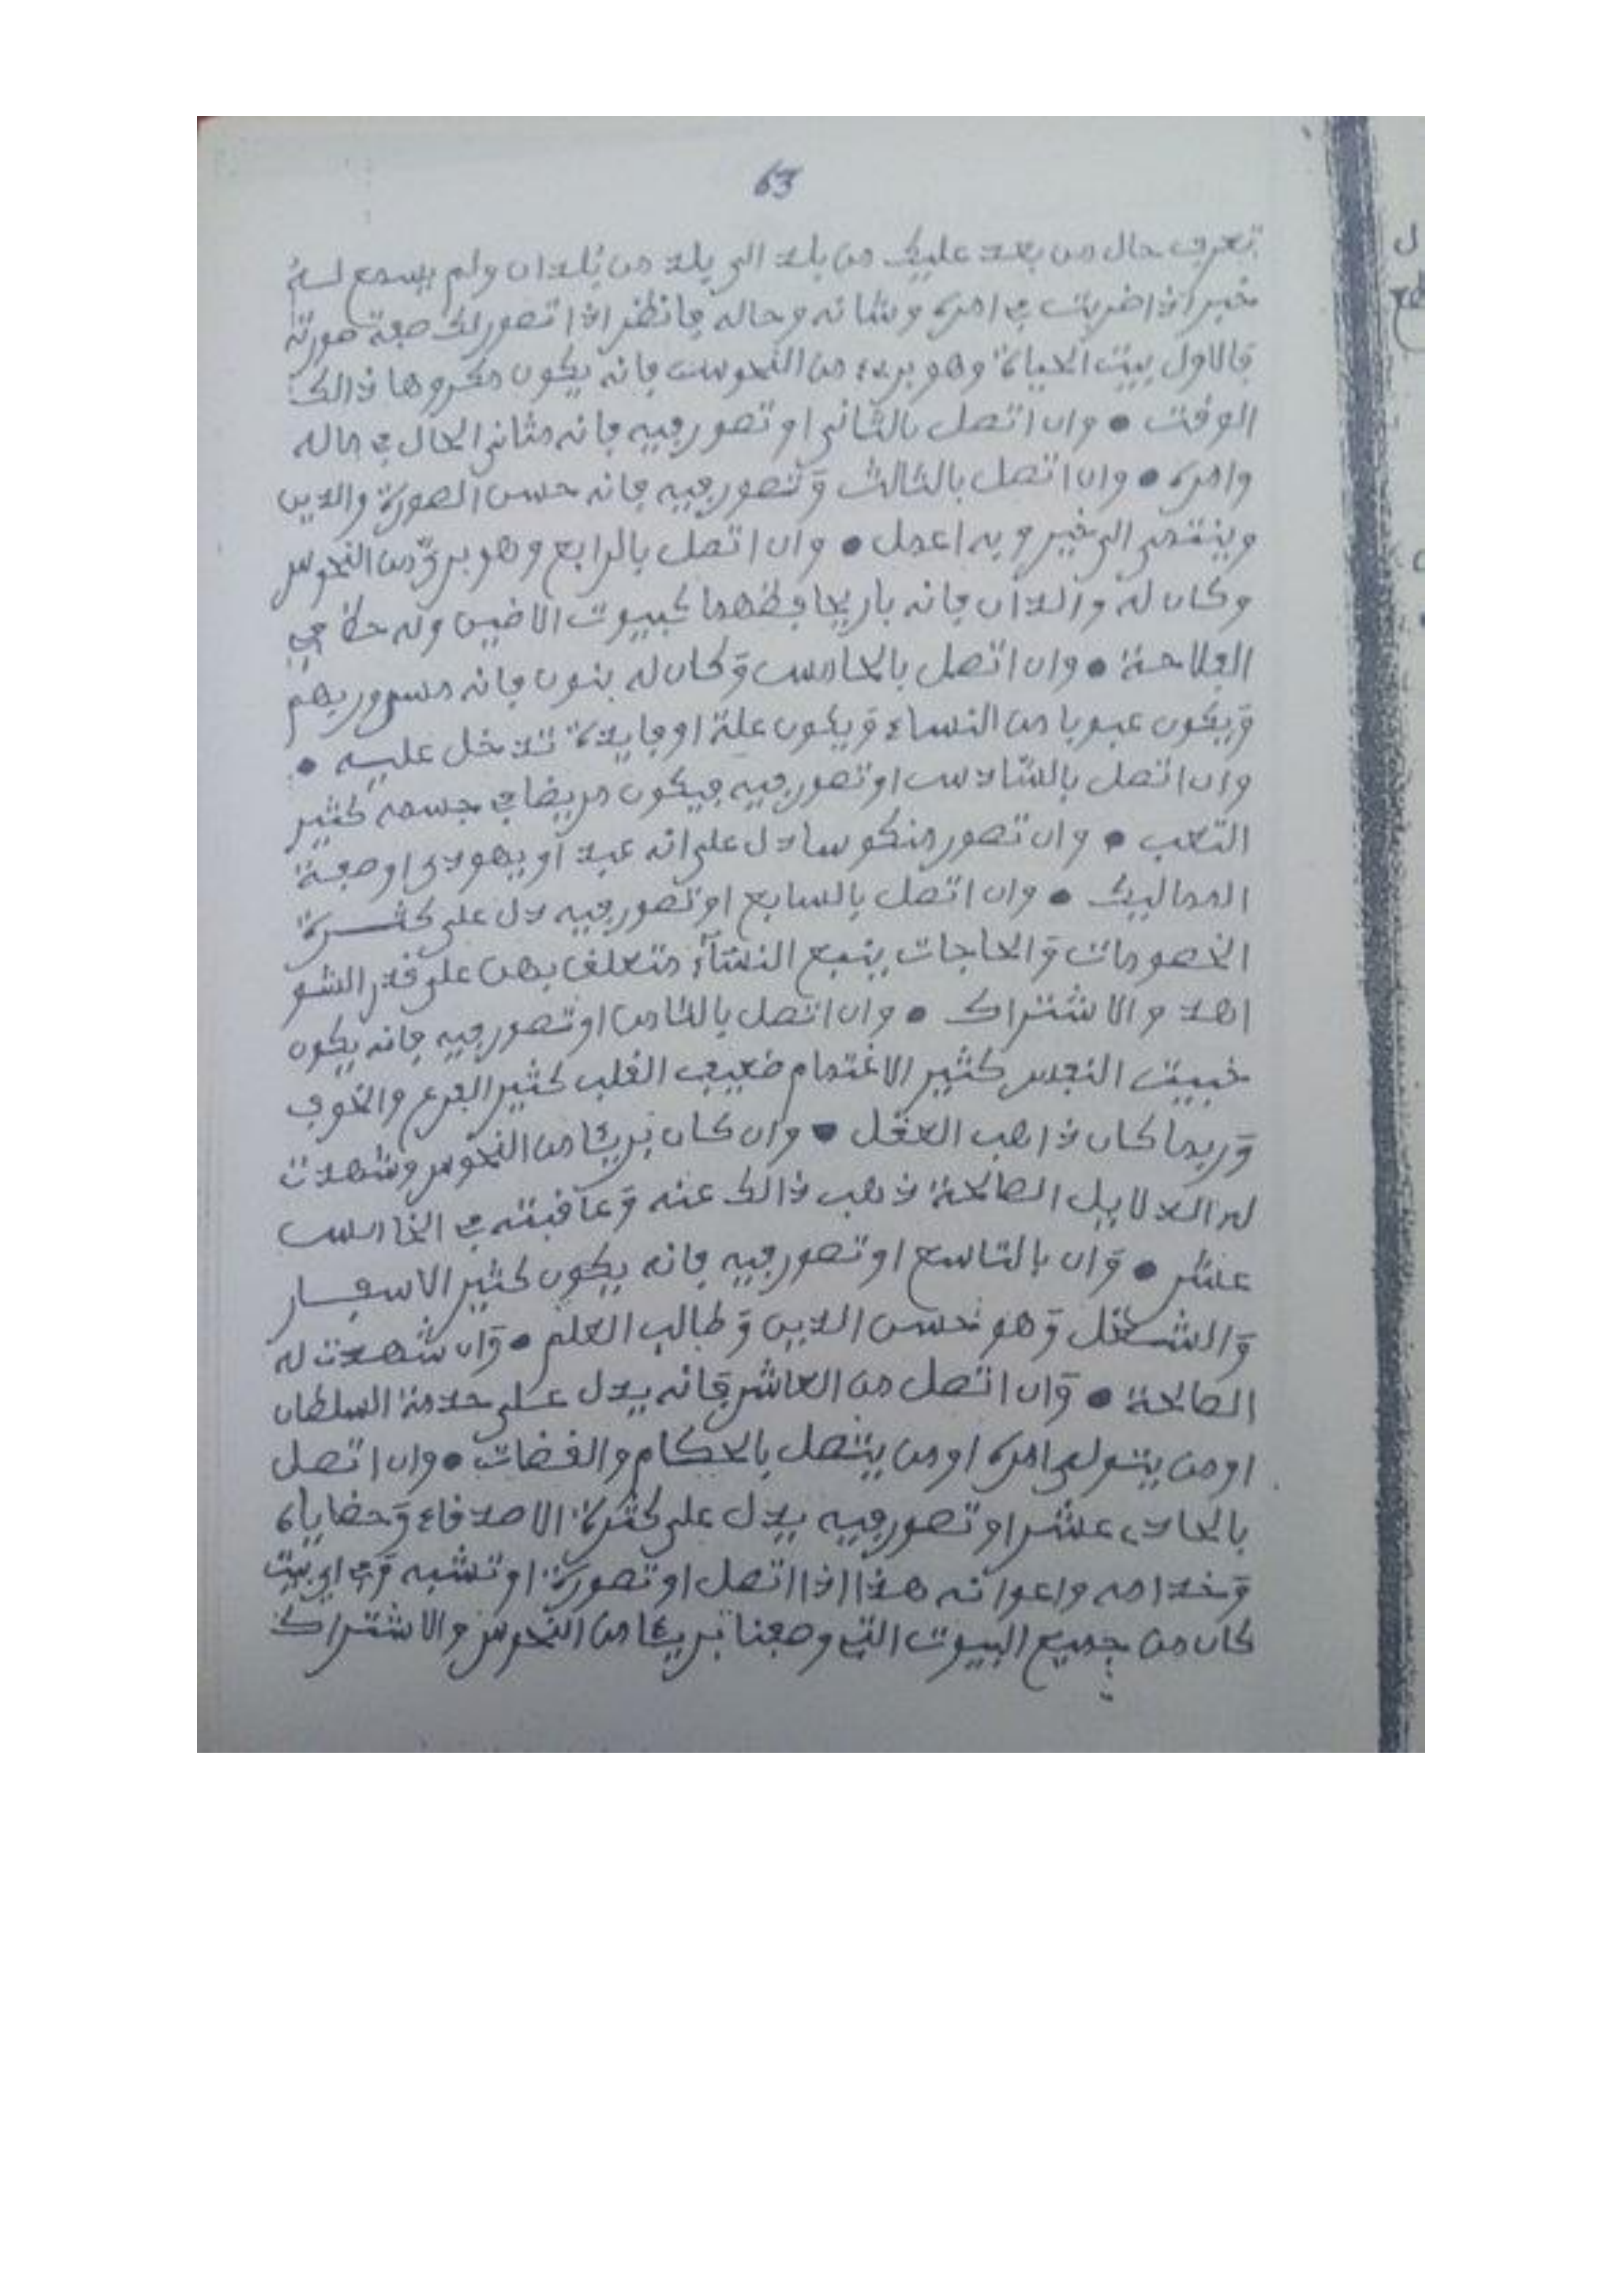 63
تعرف حال من بعد عليك من بلد الى بلد من بلدان ولم يسمع له
خبر اذا ضربت في امره وشانه وحاله فانظر اذا تصور لك صفة صورته
فالاول بيت الحياة وهو برىء من النحوس فانه يكون مكروها ذالك
الوقت • وان اتصل بالثاني او تصور فيه فانه مثاني الحال في ماله
وامره • وان اتصل بالثالث وتصور فيه فانه حسن الصورة والدين
وينتمى الى خير وبه اعمل • وان اتصل بالرابع وهو برئ من النحوس
وكان له والدان فانه بار يحافظهما كبيوت الاضين وله حظ في
الفلاحة • وان اتصل بالخامس وكان له بنون فانه مسرور بهم
ويكون عبوبا من النساء ويكون علة او فايدة تدخل عليه •
وان اتصل بالسادس او تصور فيه فيكون مريضا في جسمه كثير
التعب • وان تصور منكوسا دل على انه عبد او يهودى او صفة
المماليك • وان اتصل بالسابع او تصور فيه دل على كثرة
الخصومات والحاجات يتبع النساء متعلق بهن على قدر الشو
اهد والاشتراك • وان اتصل بالثامن او تصور فيه فانه يكون
خبيث النفس كثير الاغتمام ضعيف القلب كثير الفزع والخوف
وربما كان ذاهب العقل • وان كان بريئا من النحوس وشهدت
له الدلايل الصالحة ذهب ذالك عنه وعاقبته في الخامس
عشر • وان بالتاسع او تصور فيه فانه يكون كثير الاسفار
والشغل وهو حسن الدين وطالب العلم • وان شهدت له
الصالحة • وان اتصل من العاشر فانه يدل على خدمة السلطان
او من يتولى امره او من يتصل بالحكام والقضات • وان اتصل
بالحادى عشر او تصور فيه يدل على كثرة الاصدقاء وحضاياه
وخدامه واعوانه هذا اذا اتصل او تصورة او تشبه وفى اي بيت
كان من جميع البيوت التي وصفنا بريئا من النحوس والاشتراك